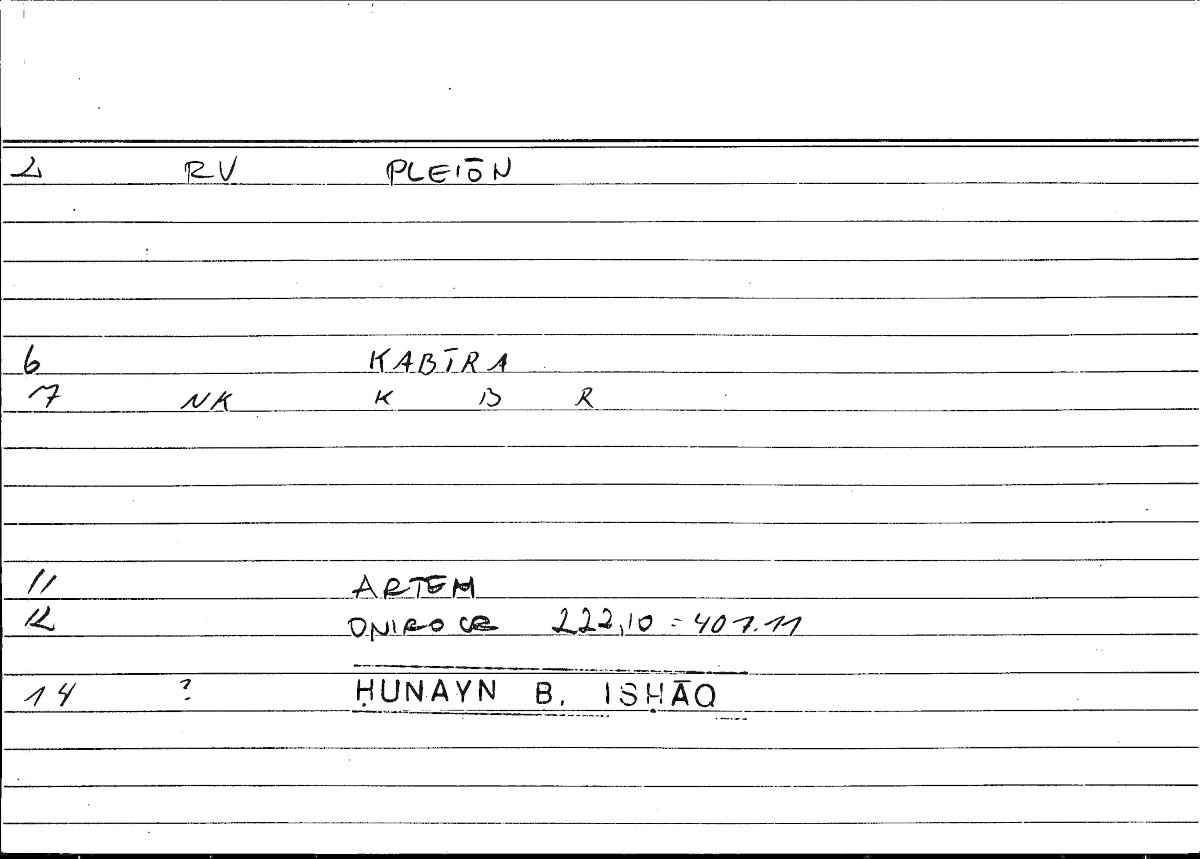 2 RV PLEIŌN
6 KABĪRA
7 NK K B R
11 ARTEM
12 ONIROCR 222,10 = 401.11
14 ? ḤUNAYN B. ISḤĀQ